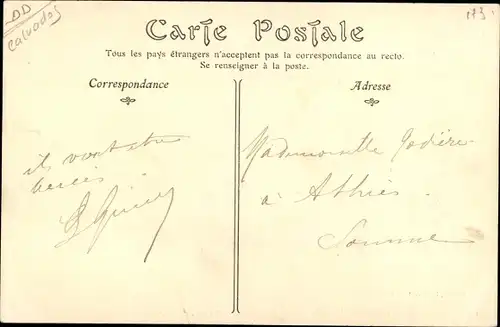 DD
Calvados
173.
Carte Postale
Tous les pays étrangers n'acceptent pas la correspondance au recto.
Se renseigner à la poste.
Correspondance
ils vont
Adresse
Mademoiselle
à Athies
Somme